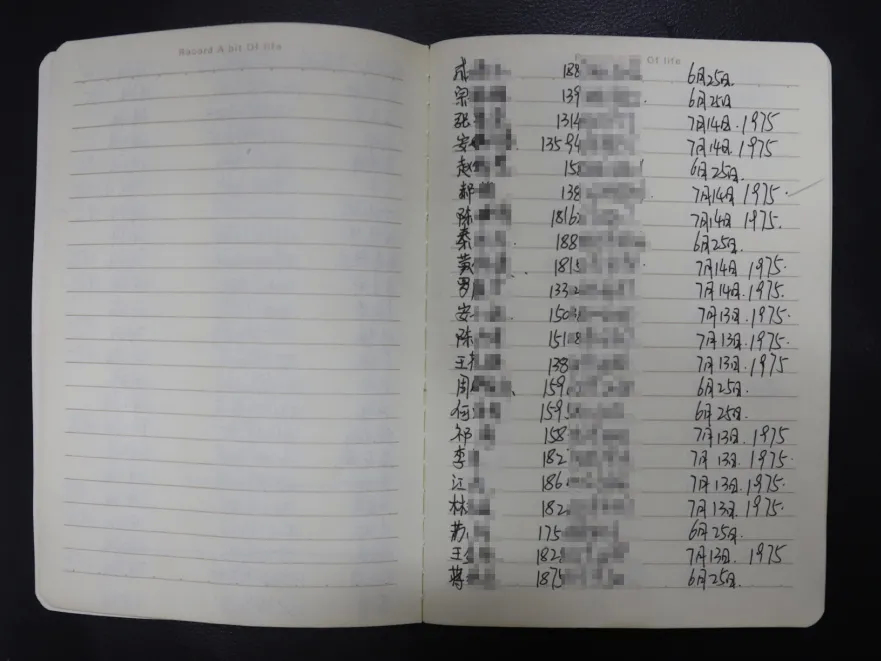 Record A bit Of life
Of life
成 188 6月25日.
宋 139 6月25日
张 1314 7月14日.1975
安 13594 7月14日.1975
赵 15 6月25日.
郝 138 7月14日1975.
陈 1816 7月14日1975.
秦 188 6月25日.
黄 1815 7月14日1975.
罗 1332 7月14日.1975.
安 150 7月13日.1975.
陈 1518 7月13日.1975.
王 138 7月13日.1975
周 159 6月25日.
何 1595 6月25日.
祁 158 7月13日.1975
李 182 7月13日.1975.
江 186 7月13日.1975.
林 182 7月13日.1975
苏 175 6月25日.
王 182 7月13日.1975
蒋 1875 6月25日.